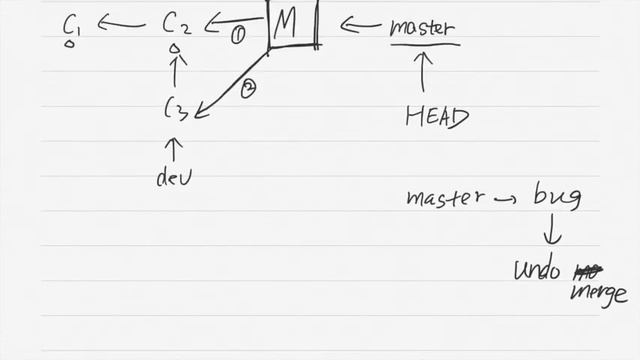 C1 C2 ① M master
C3 ② HEAD
dev
master → bug
undo
merge